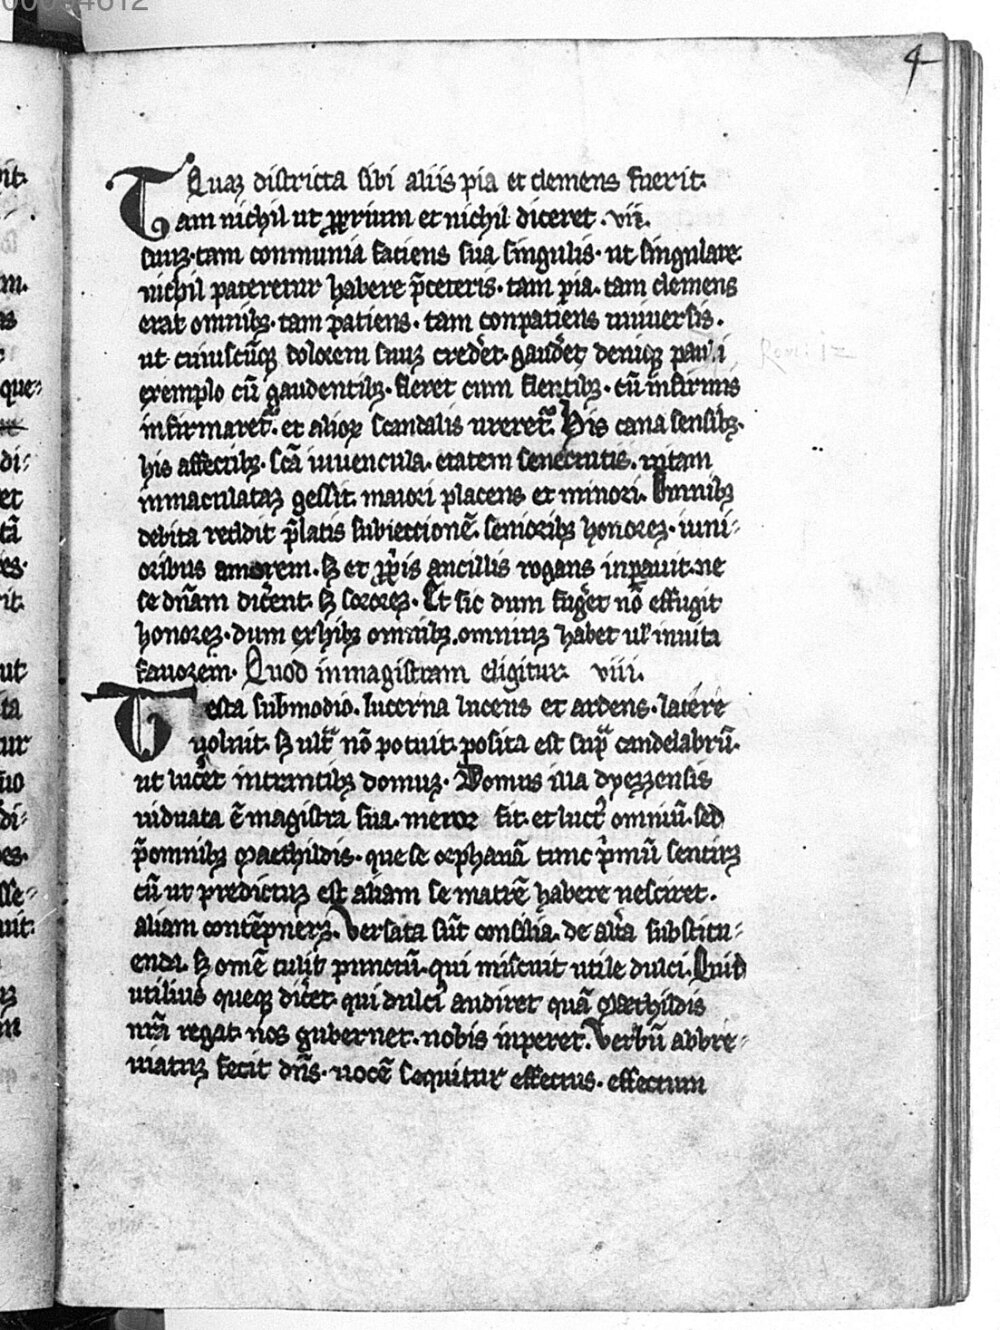 4
Quaꝫ districta sibi aliis pia et clemens fuerit.
Tam nichil ut ꝓprium et nichil diceret .vii.
suuꝫ· tam communia faciens sua singulis· ut singulare
nichil pateretur habere p̄ceteris· tam pia· tam clemens
erat omnibꝫ· tam patiens· tam conpatiens uniuersis.
ut cuiuscūqꝫ dolorem suuꝫ cred̓et· gaud̓et deniqꝫ pauli
exemplo cū gaudentibꝫ· fleret cum flentibꝫ· cū infirmis
infirmaret᷑· et alioꝝ scandalis ureret᷑. His cana sensibꝫ·
his affectibꝫ· sc̄a iuuencula· etatem senectutis· uitam
inmaculataꝫ gessit· maiori placens et minori. Omnibꝫ
debita reddit p̄latis subiectionē· senioribꝫ honoreꝫ· iuni-
oribus amorem· sꝫ et ꝓp̓is ancillis rogans inpauit· ne
se dn̄am dic̓ent· sꝫ sororeꝫ· Et sic dum fug̓et nō effugit
honoreꝫ· dum exhibꝫ omnibꝫ· omniuꝫ habet ul̓ inuita
fauorem· Quod in magistram eligitur. viii.
Testa submodio· lucerna lucens et ardens· latere
uoluit· sꝫ ult̓ nō potuit· posita est sup̓ candelabrū·
ut luc̓et intrantibꝫ domuꝫ· Domus illa dyezzensis
uiduata ē magistra sua· meror fit· et luct᷒ omniū· sed
p̄omnibꝫ Maethildis· que se orphanā tunc p̓mū sentiꝫ
cū ut predictuꝫ est aliam se matrē habere nesciret·
aliam contēpneꝫ. Versata sūt consilia· de alt̓a substitu-
enda· sꝫ omē tulit punctū· qui miscuit utile dulci. Quid
utilius queqꝫ dic̓et· qui dulci᷒ audiret quā Maethildis
nr̄a regat· nos gubernet· nobis inperet. Verbū abbre-
uiatuꝫ fecit dn̄s· uocē sequitur effectus· effectum
Rom 12